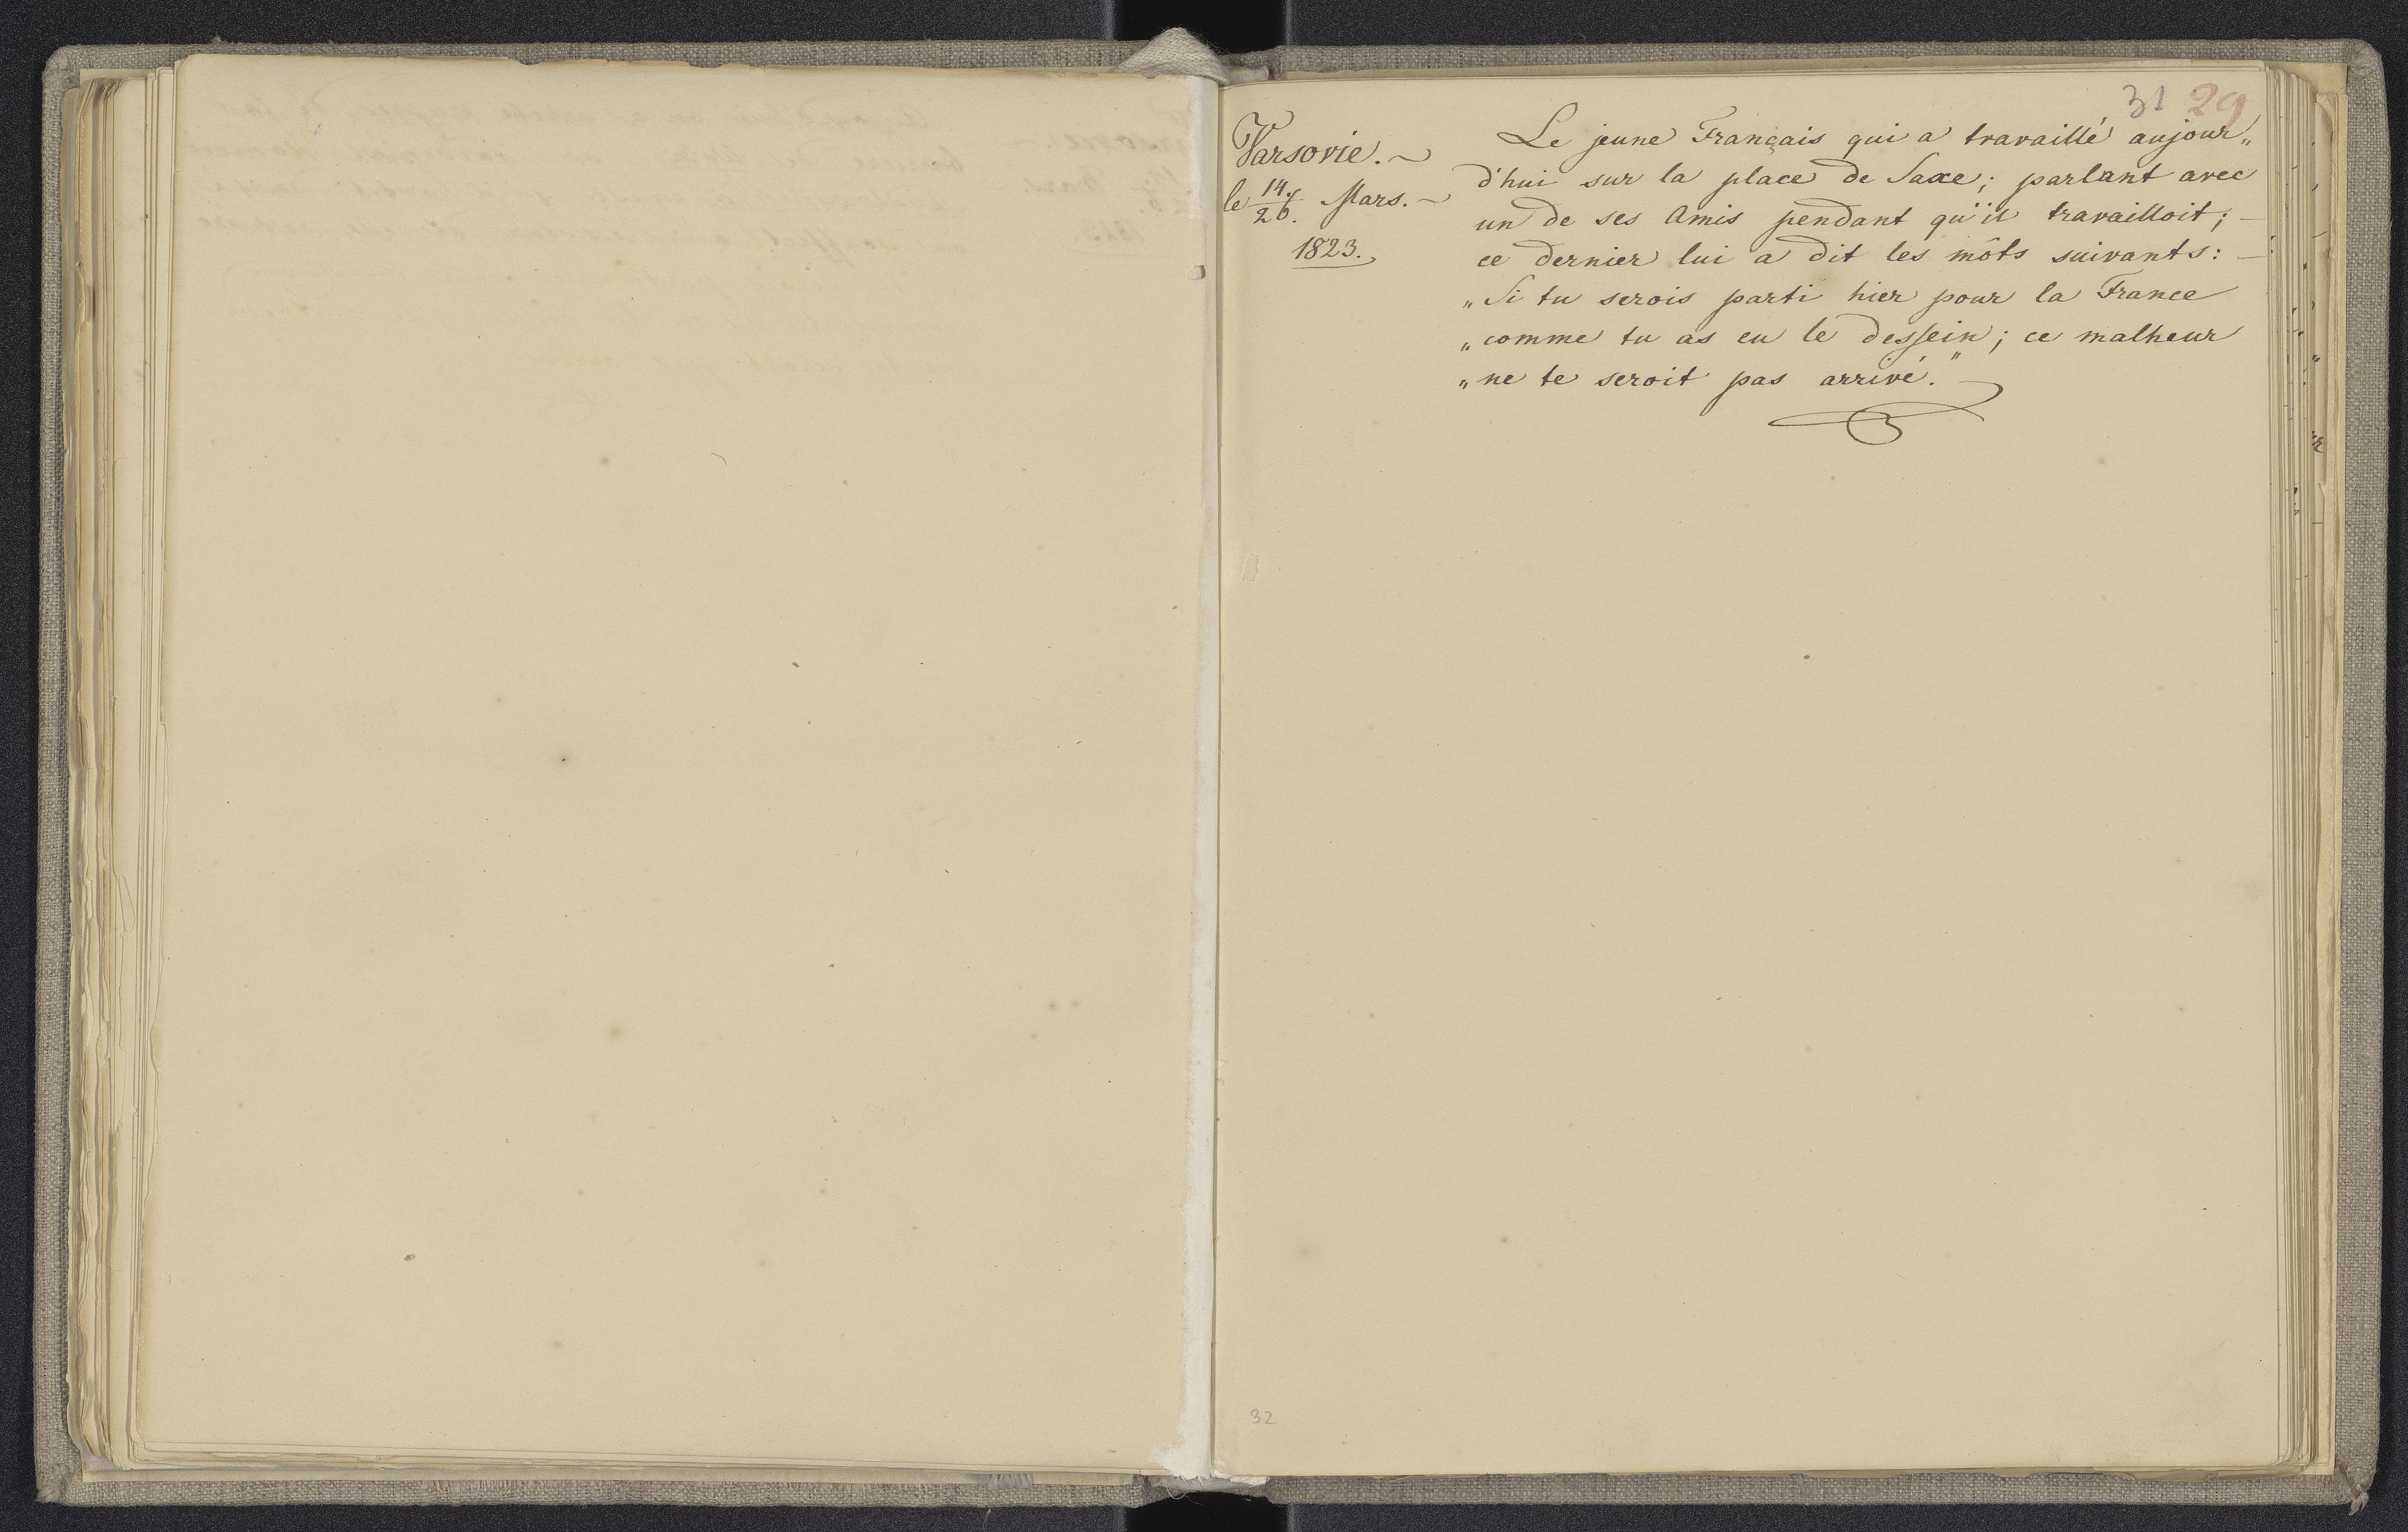 31 29
Varsovie.~
le 14/26. Mars.~
1823.
Le jeune Français qui a travaillé aujour„
d'hui sur la place de Saxe; parlant avec
un de ses Amis pendant qu'il travailloit; –
ce dernier lui a dit les môts suivants: –
„Si tu serois parti hier pour la France
„comme tu as eu le dessein; ce malheur
„ne te seroit pas arrivé."
32